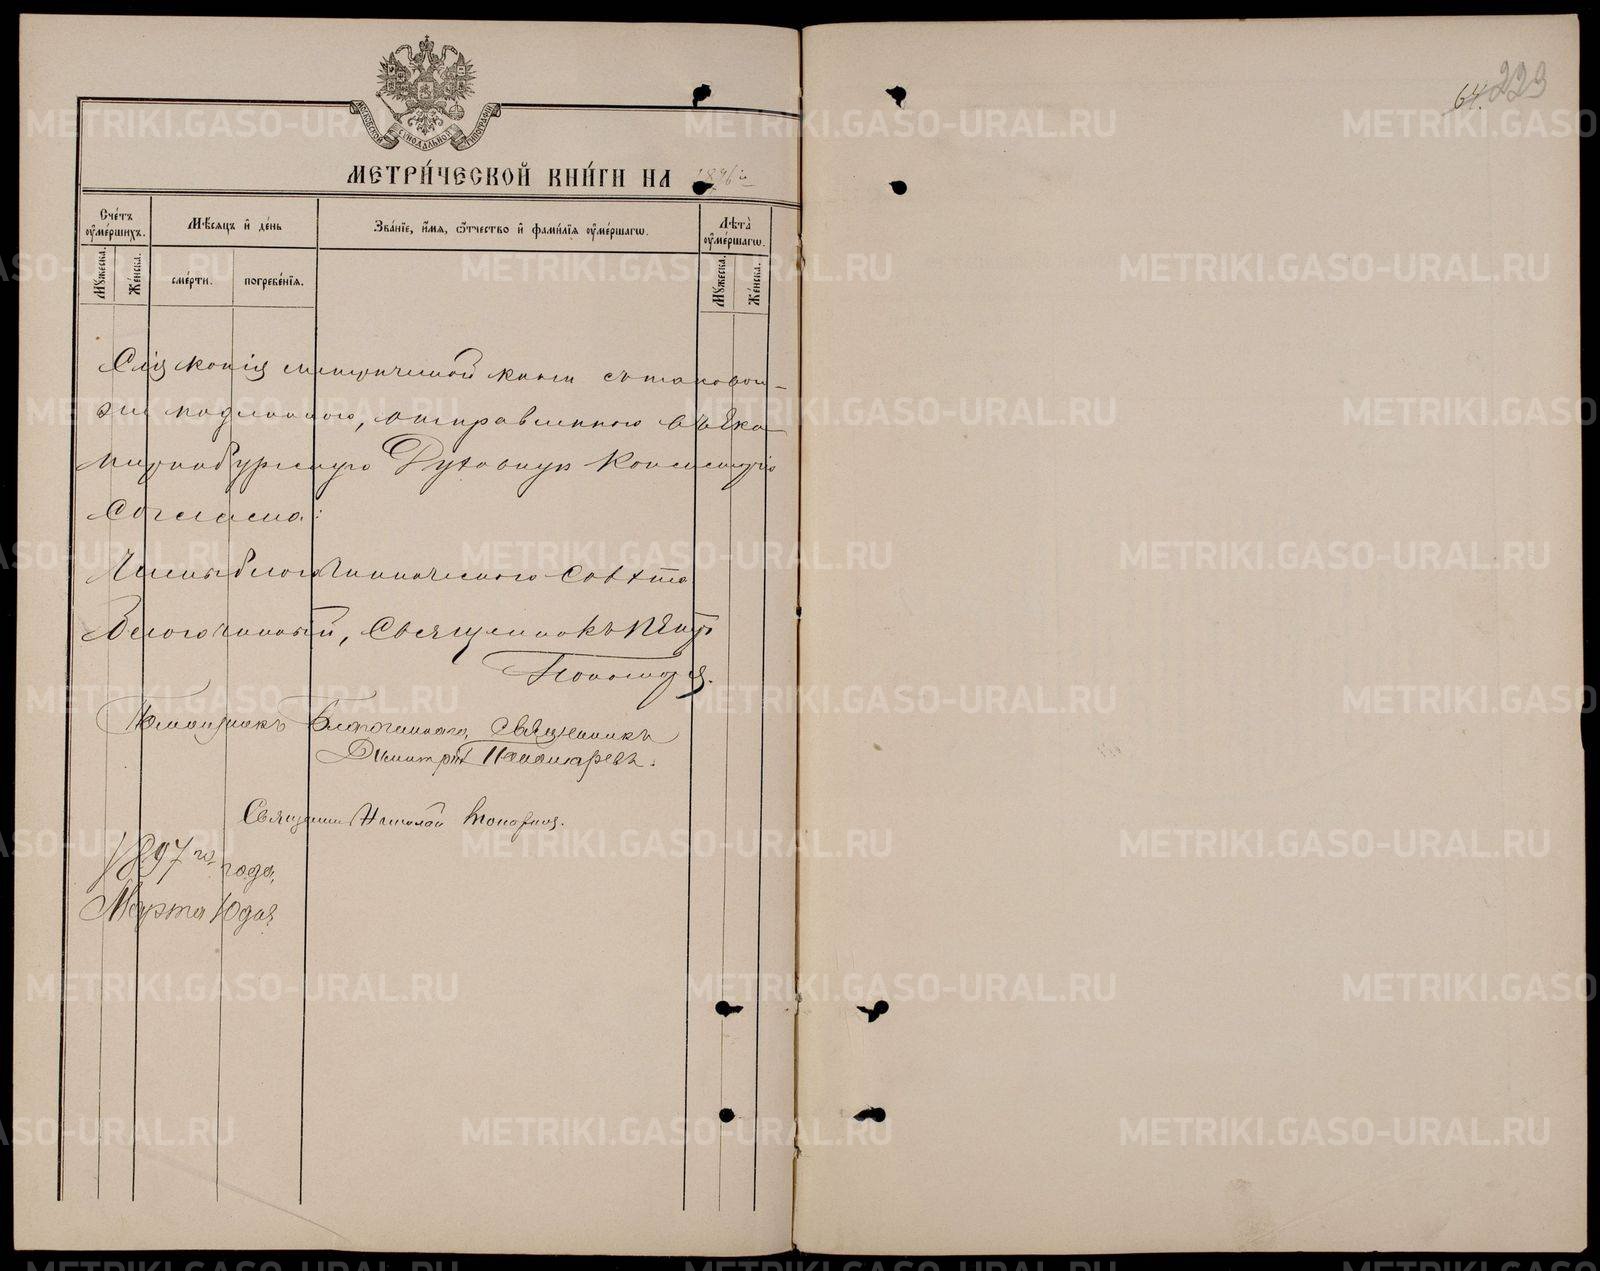 МОСКОВСКОЙ СѴНОДАЛЬНОЙ ТИПОГРАФІИ
МЕТРИ́ЧЕСКОЙ КНИ́ГИ НА 1896 й
Сче́тъ оумершихъ.
Мѣ́сяцъ и де́нь
Зва́ніе, и́мя, о́тчество и фами́лія оуме́ршагѡ.
Лѣта̀ оуме́ршагѡ.
Мꙋжеска.
Же́нска.
сме́рти.
погребе́нія.
Мꙋжеска.
Же́нска.
Сія копія метрической книги съ таковою-
же подлинною, отправленною въ Ека
теринбургскую Духовную Консисторію
Согласна:
Члены благочинническаго Совѣта
Благочинный, Священникъ Петръ
Пономарев.
Помощникъ Благочиннаго, Священникъ
Димитрій Пономаревъ.
Священник Николай
1897 го года,
Марта 10 дня
64. 223
METRIKI.GASO-URAL.RU